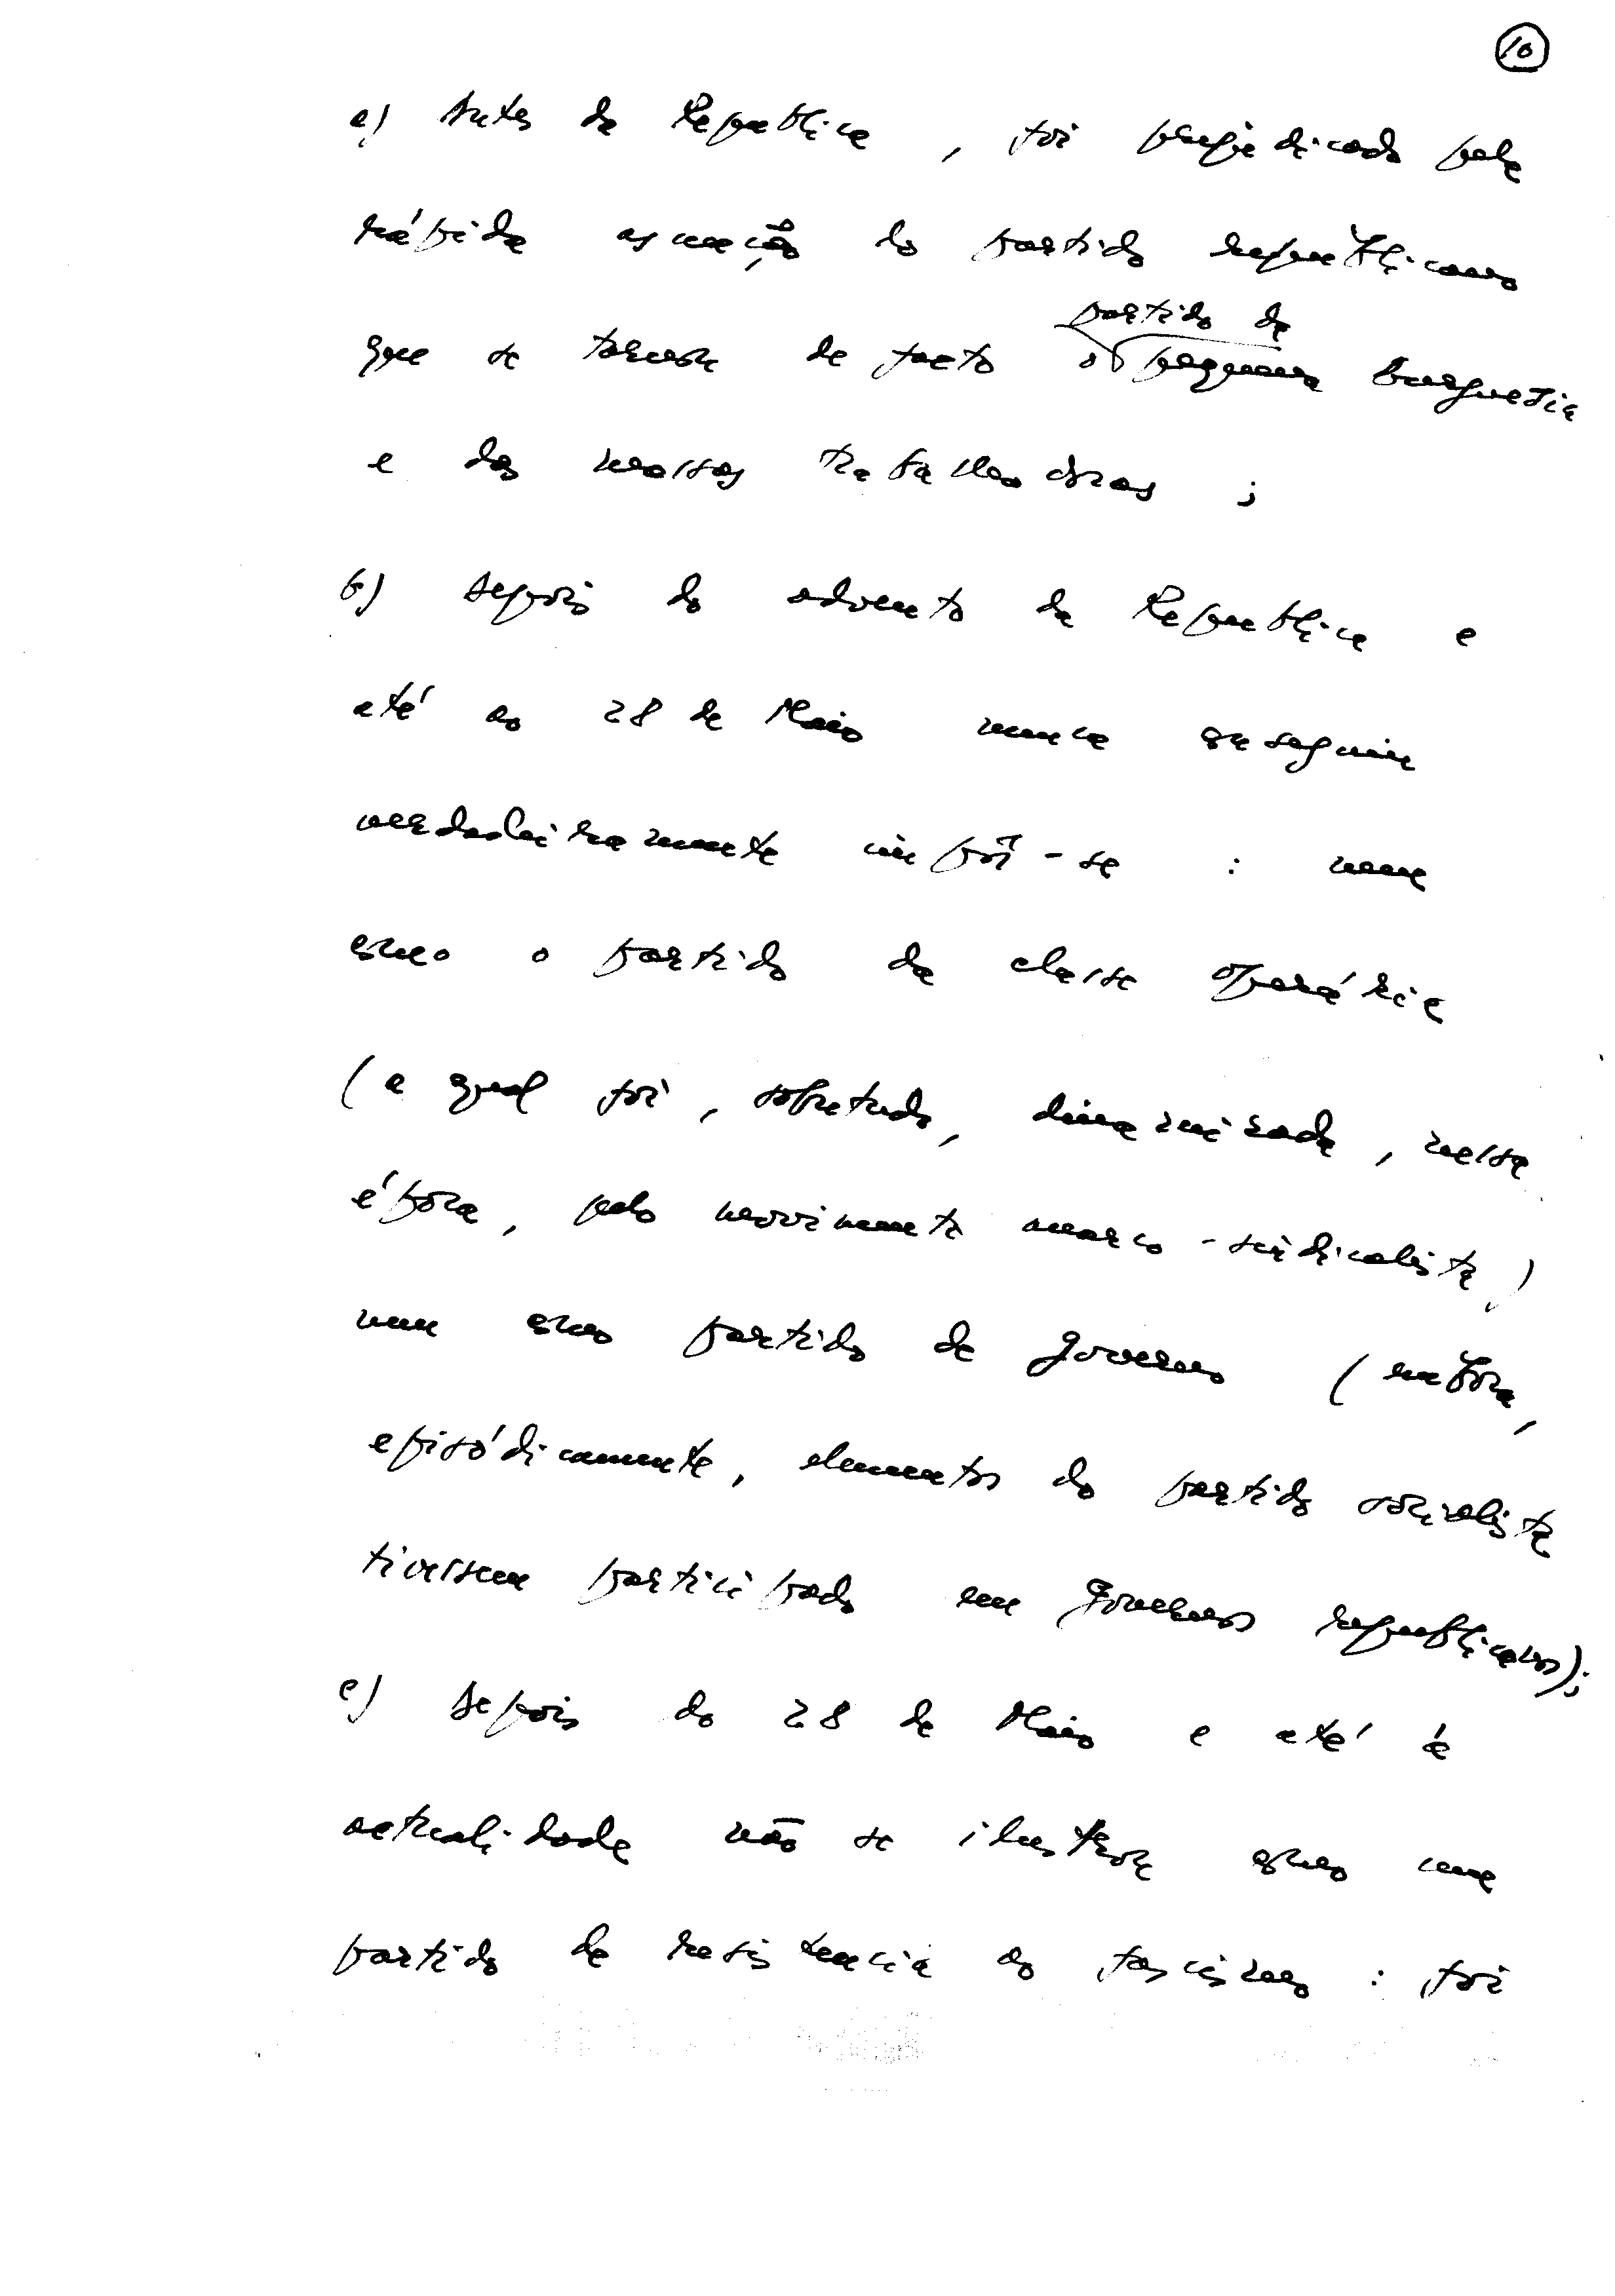 10
a) Antes da Republica, foi prejudicado pela
rápida ascenção do partido republicano
partido da
que se tornou de facto o pequena burguesia
e das massas trabalhadoras;
b) depois do advento da Republica e
até ao 28 de Maio nunca conseguiu
verdadeiramente impôr-se: nem
como o partido da classe operária
(a qual foi, sobretudo, dinamizada, nessa
época, pelo movimento anarco-sindicalista)
nem como partido de governo (embora,
episódicamente, elementos do partido socialista
tivessem participado em governos republicanos);
c) depois do 28 de Maio e até à
actualidade não se ilustrou como um
partido de resistencia ao fascismo: foi